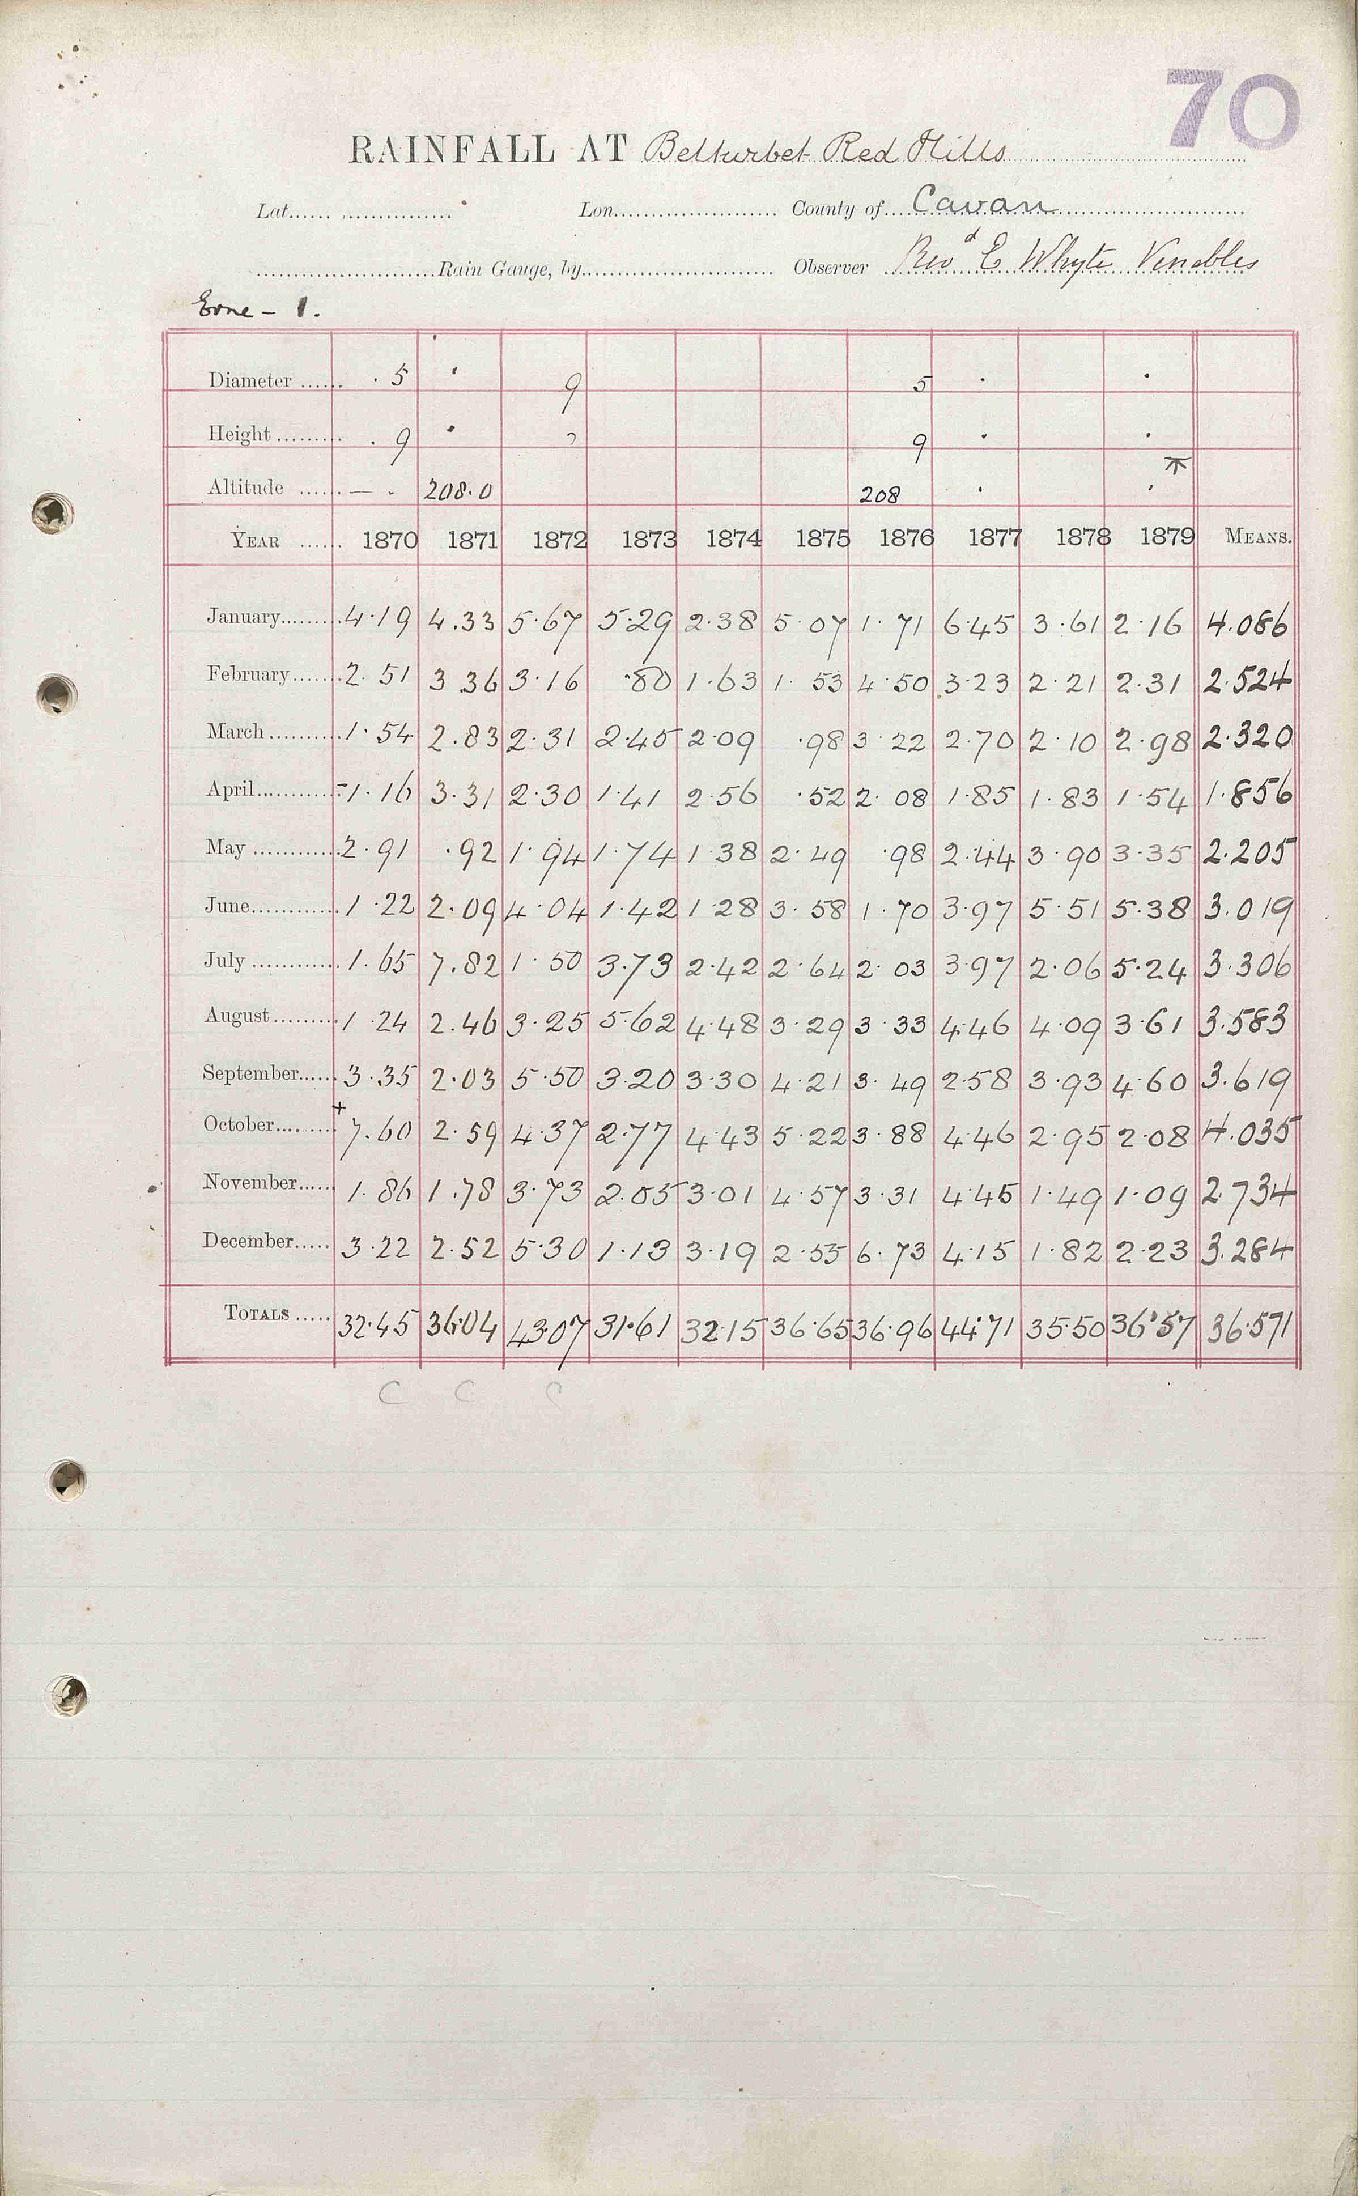 70
RAINFALL AT Belturbet Red Hills
Lat. Lon. County of Cavan
Rain Gauge, by Observer Revd E Whyte Venables
Erne - 1.
Diameter 5 9 5
Height 9 9
Altitude — 208.0 208
YEAR 1870 1871 1872 1873 1874 1875 1876 1877 1878 1879 MEANS.
January 4.19 4.33 5.67 5.29 2.38 5.07 1.71 6.45 3.61 2.16 4.086
February 2.51 3.36 3.16 .80 1.63 1.53 4.50 3.23 2.21 2.31 2.524
March 1.54 2.83 2.31 2.45 2.09 .98 3.22 2.70 2.10 2.98 2.320
April 1.16 3.31 2.30 1.41 2.56 .52 2.08 1.85 1.83 1.54 1.856
May 2.91 .92 1.94 1.74 1.38 2.49 .98 2.44 3.90 3.35 2.205
June 1.22 2.09 4.04 1.42 1.28 3.58 1.70 3.97 5.51 5.38 3.019
July 1.65 7.82 1.50 3.73 2.42 2.64 2.03 3.97 2.06 5.24 3.306
August 1.24 2.46 3.25 5.62 4.48 3.29 3.33 4.46 4.09 3.61 3.583
September 3.35 2.03 5.50 3.20 3.30 4.21 3.49 2.58 3.93 4.60 3.619
October +7.60 2.59 4.37 2.77 4.43 5.22 3.88 4.46 2.95 2.08 4.035
November 1.86 1.78 3.73 2.05 3.01 4.57 3.31 4.45 1.49 1.09 2.734
December 3.22 2.52 5.30 1.13 3.19 2.55 6.73 4.15 1.82 2.23 3.284
TOTALS 32.45 36.04 43.07 31.61 32.15 36.65 36.96 44.71 35.50 36.57 36.571
C C C